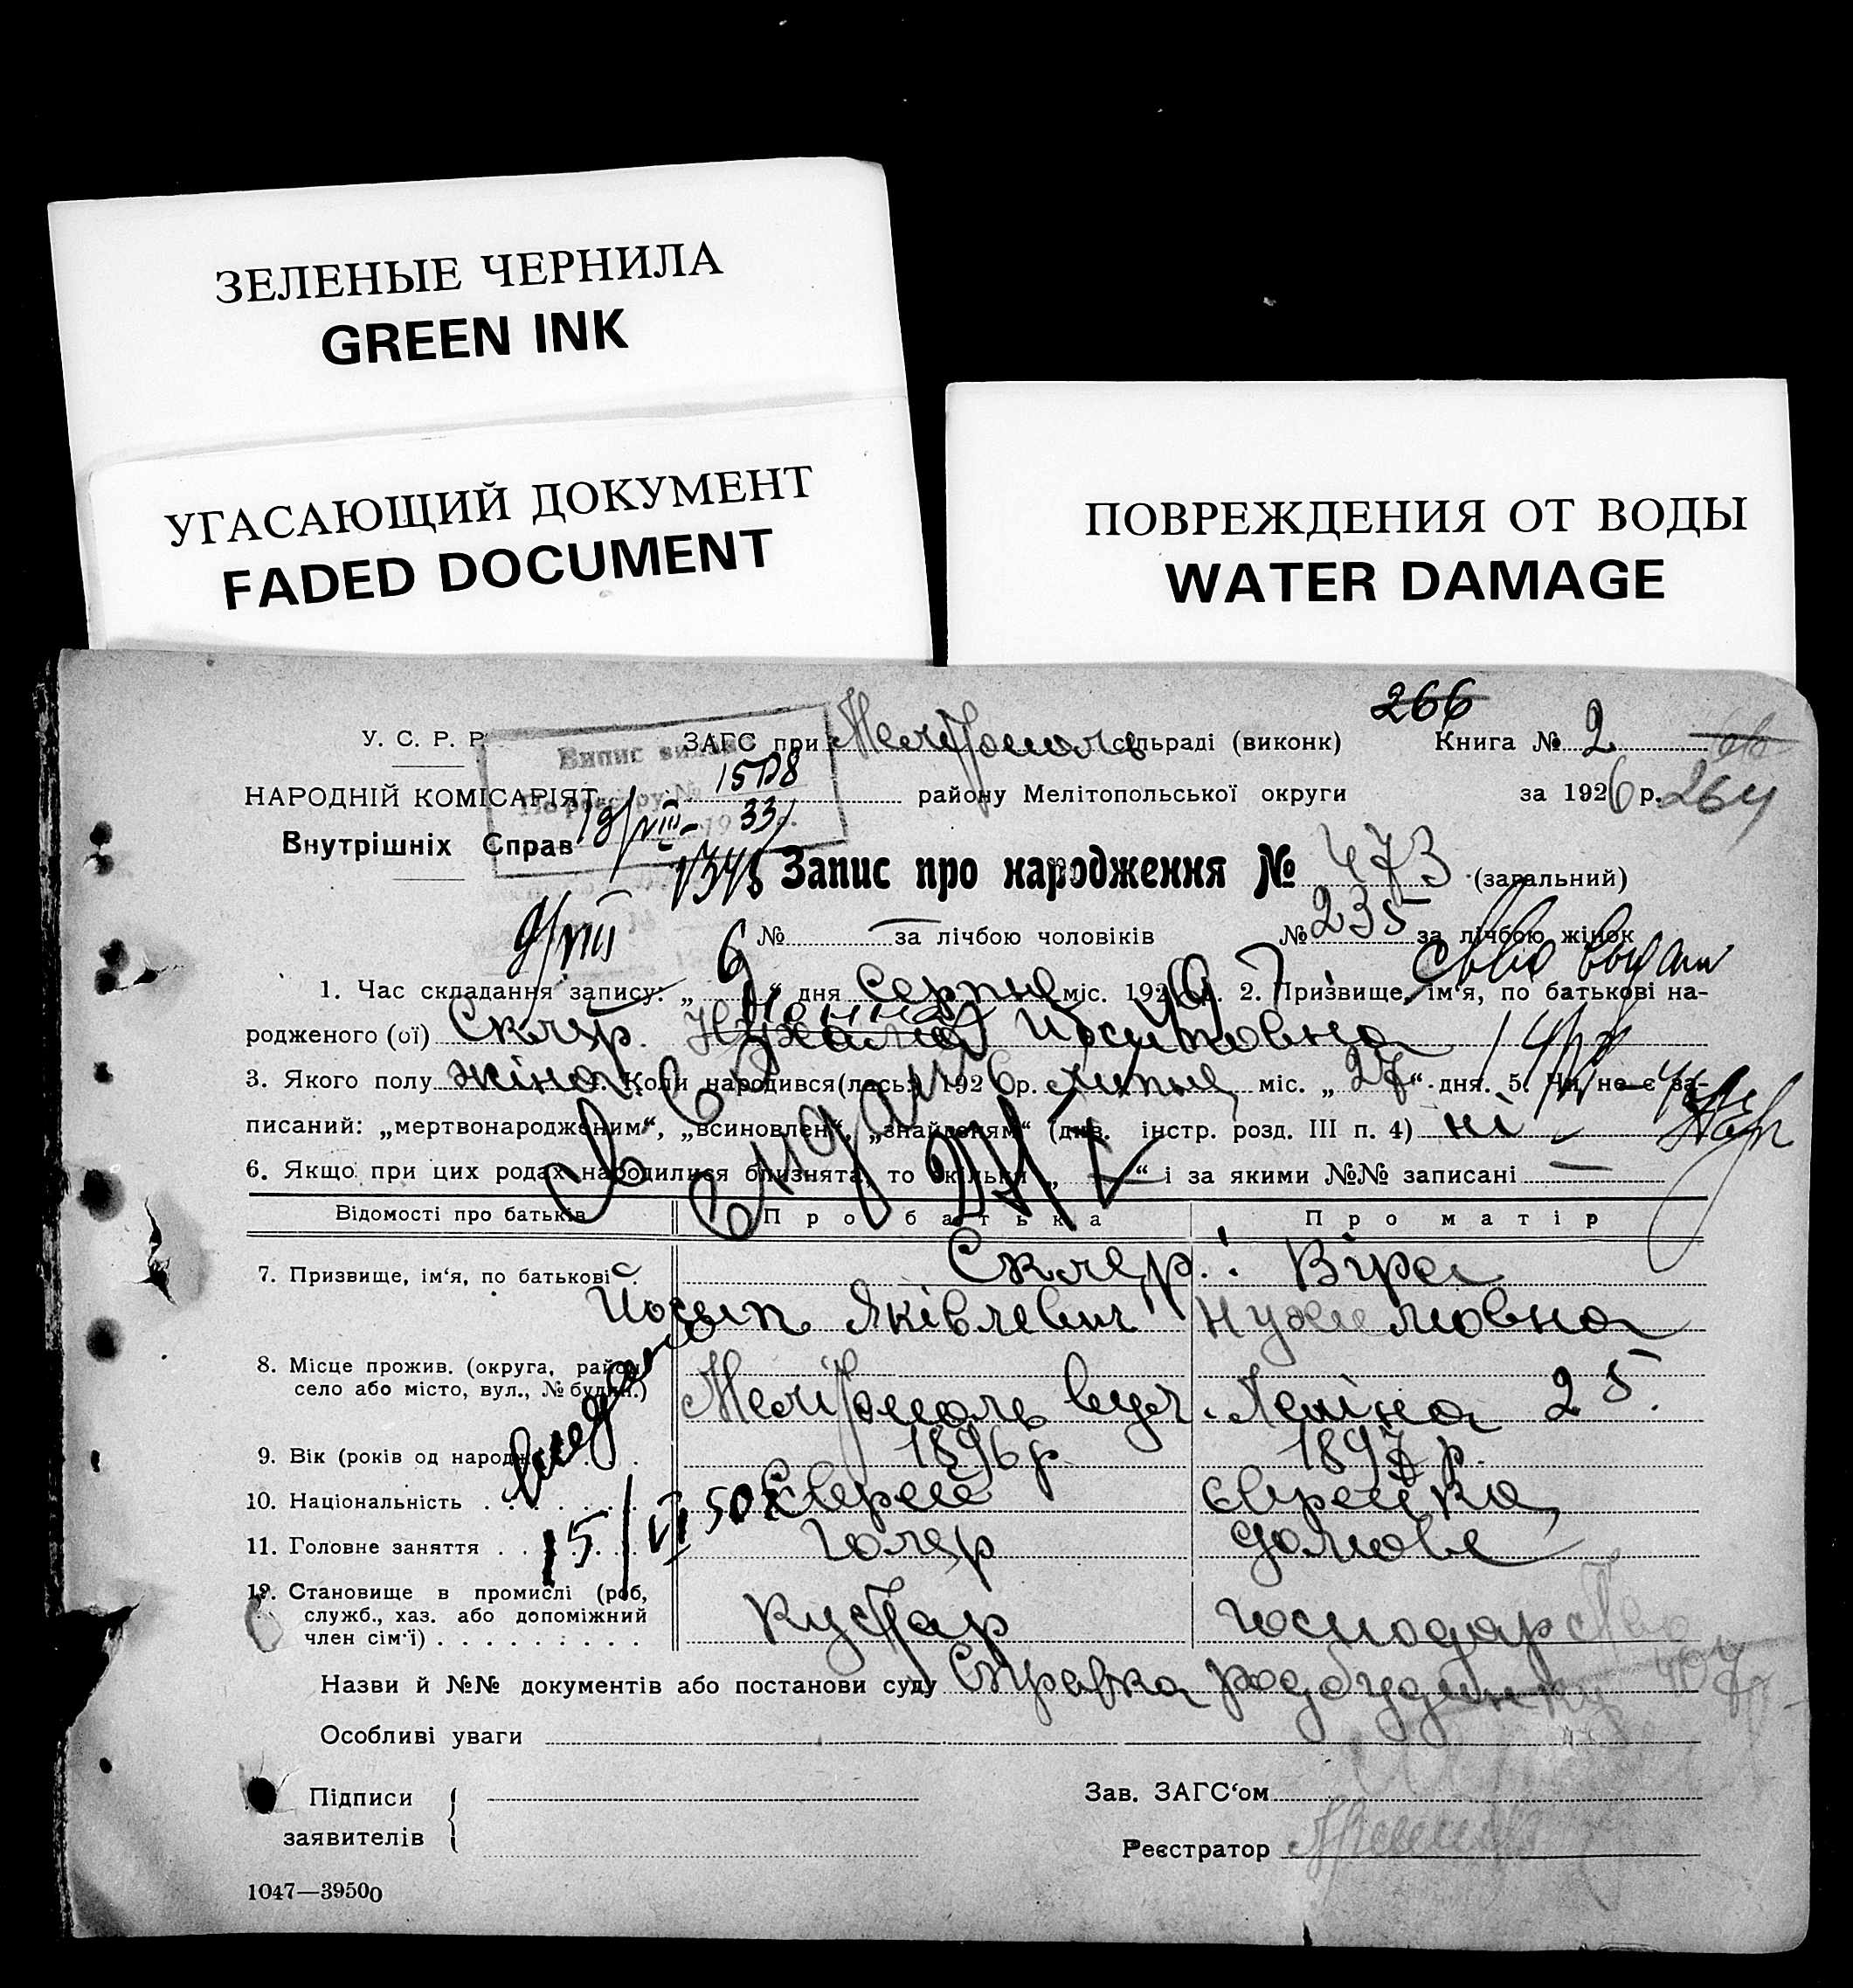 ЗЕЛЕНЫЕ ЧЕРНИЛА
GREEN INK
УГАСАЮЩИЙ ДОКУМЕНТ
FADED DOCUMENT
ПОВРЕЖДЕНИЯ ОТ ВОДЫ
WATER DAMAGE
266
У. С. Р. Р. ЗАГС при Мелітополь сільраді (виконк) Книга № 2
НАРОДНІЙ КОМІСАРІЯТ району Мелітопольської округи за 1926 р. 264
Випис
По реєстру №
19/VIII- 1933
Внутрішніх Справ
Запис про народження № 473 (загальний)
9/VIII № — за лічбою чоловіків № 235 за лічбою жінок
1. Час складання запису: „ 6 “ дня серпня міс. 1926 р. 2. Призвище, ім‘я, по батькові на-
родженого (ої) Скляр. Йосиповна
3. Якого полу жіноч. 4. Коли народився(лась) 1926р. липня міс. „ 27 “ дня. 5. Чи не є за-
писаний: „мертвонародженим“, „всиновлен“, „знайденям“ (див. інстр. розд. III п. 4) ні
6. Якщо при цих родах народилися близнята, то скільки „ — “ і за якими №№ записані —
Відомості про батьків Про батька Про матір
7. Призвище, ім‘я, по батькові Скляр: Віра
Йосип Яківлевич Нухимовна
8. Місце прожив. (округа, район,
село або місто, вул., № будин.) Мелітополь вул. Леніна 25.
9. Вік (років од народж. 1896р. 1897р.
10. Національність Єврей єврейка
11. Головне заняття голяр домове
15/VI 50
12. Становище в промислі (роб,
служб., хаз. або допоміжний
член сім‘ї) Кустар господарство
Назви й №№ документів або постанови суду Справка родбудинку
Особливі уваги
Підписи
заявителів
Зав. ЗАГС‘ом
Реєстратор
1047—39500